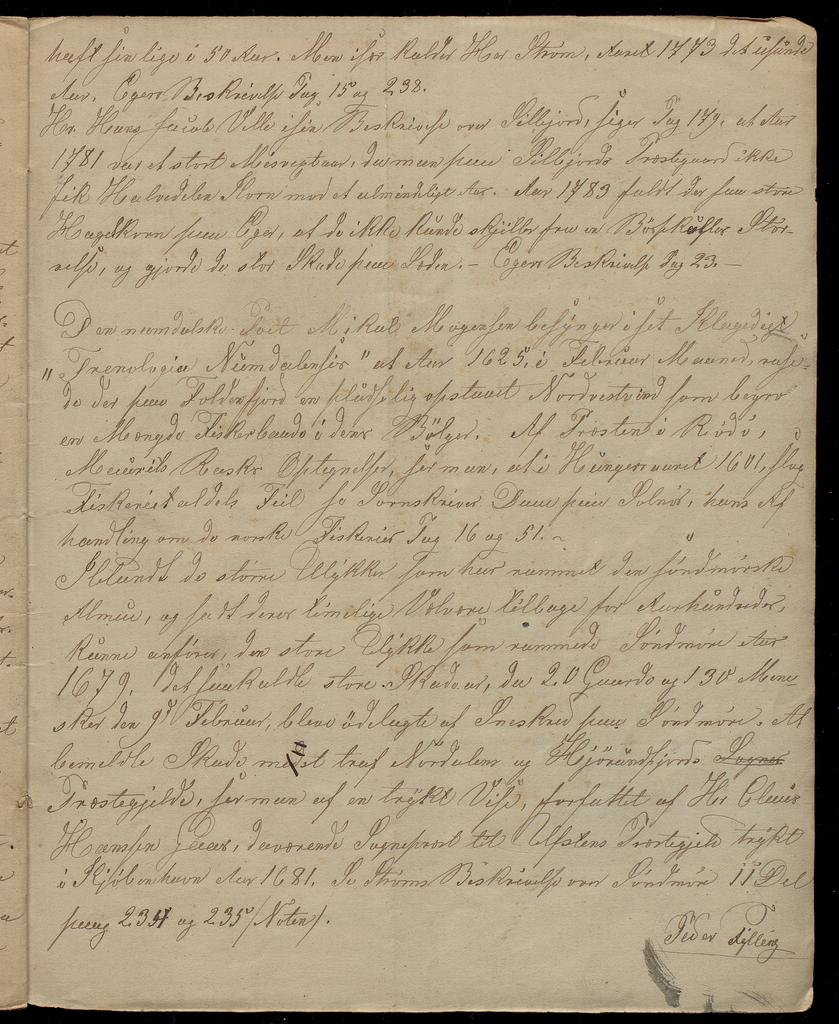 haft sin lige i 50 Aar. Men især kalder Her Strøm, Aaret 1773 det usunde
Aar, Egers Beskrivelse Pag 15 og 238.
Hr. Hans Jacob Ville i sin Beskrivelse over Sillejord, siger Pag 179, at Aar
1781 var et stort Misvextaar, da man paa Sillejords Præstegaard ikke
fik Halvdelen Korn mod et almindeligt Aar. Aar 1783 faldt der saa store
Hagelkorn paa Eger, at de ikke kunde skjilles fra en Bösskugles Stör-
relse, og gjorde de stor Skade paa Sæden. – Egers Beskrivelse Pag 23. –
Den namdalske Poet Mikal Mogensen besynger i sit Klagedigt
"Trenologia Numdalensis" at Aar 1625, i Februar Maaned, rase-
de der paa Foldenfjord en pludselig opstaaet Nordvestvind som begro
en Mængde Fiskerbaade i dens Bölger. Af Præsten i Rödö,
Mauritz Rasks Optegnelser, ser man, at i Hungersaaret 1601, slog
Fiskeriet aldels Feil se Sornskriver Daae paa Solnör, hans Af
handling om de norske Fiskerier Pag 16 og 51. ~
Iblandt de större Ulykker som har rammet den söndmörske
Almue, og sadt deres timelige Velvære tilbage for Aarhundreder,
kunne anföres, den store Ulykke som rammede Söndmöre Aar
1679, det saakaldte store Skadear, da 20 Gaarde og 130 Menne-
sker den 9de Februar, bleve ödelagte af Sneskred paa Söndmöre. At
bemeldte Skade mest traf Nordalens og Hjörundfjords Sogner
Præstegjelde, ser man af en trykt Vise, forfattet af Hr Claus
Hanssen Gaas, daværende Sogneprest til Ulfstens Præstegjeld trykt
i Kjöbenhavn Aar 1681. Se Ströms Beskrivelse over Söndmöre II Del
paag 234 og 235 (Noten).
Peder Fylling